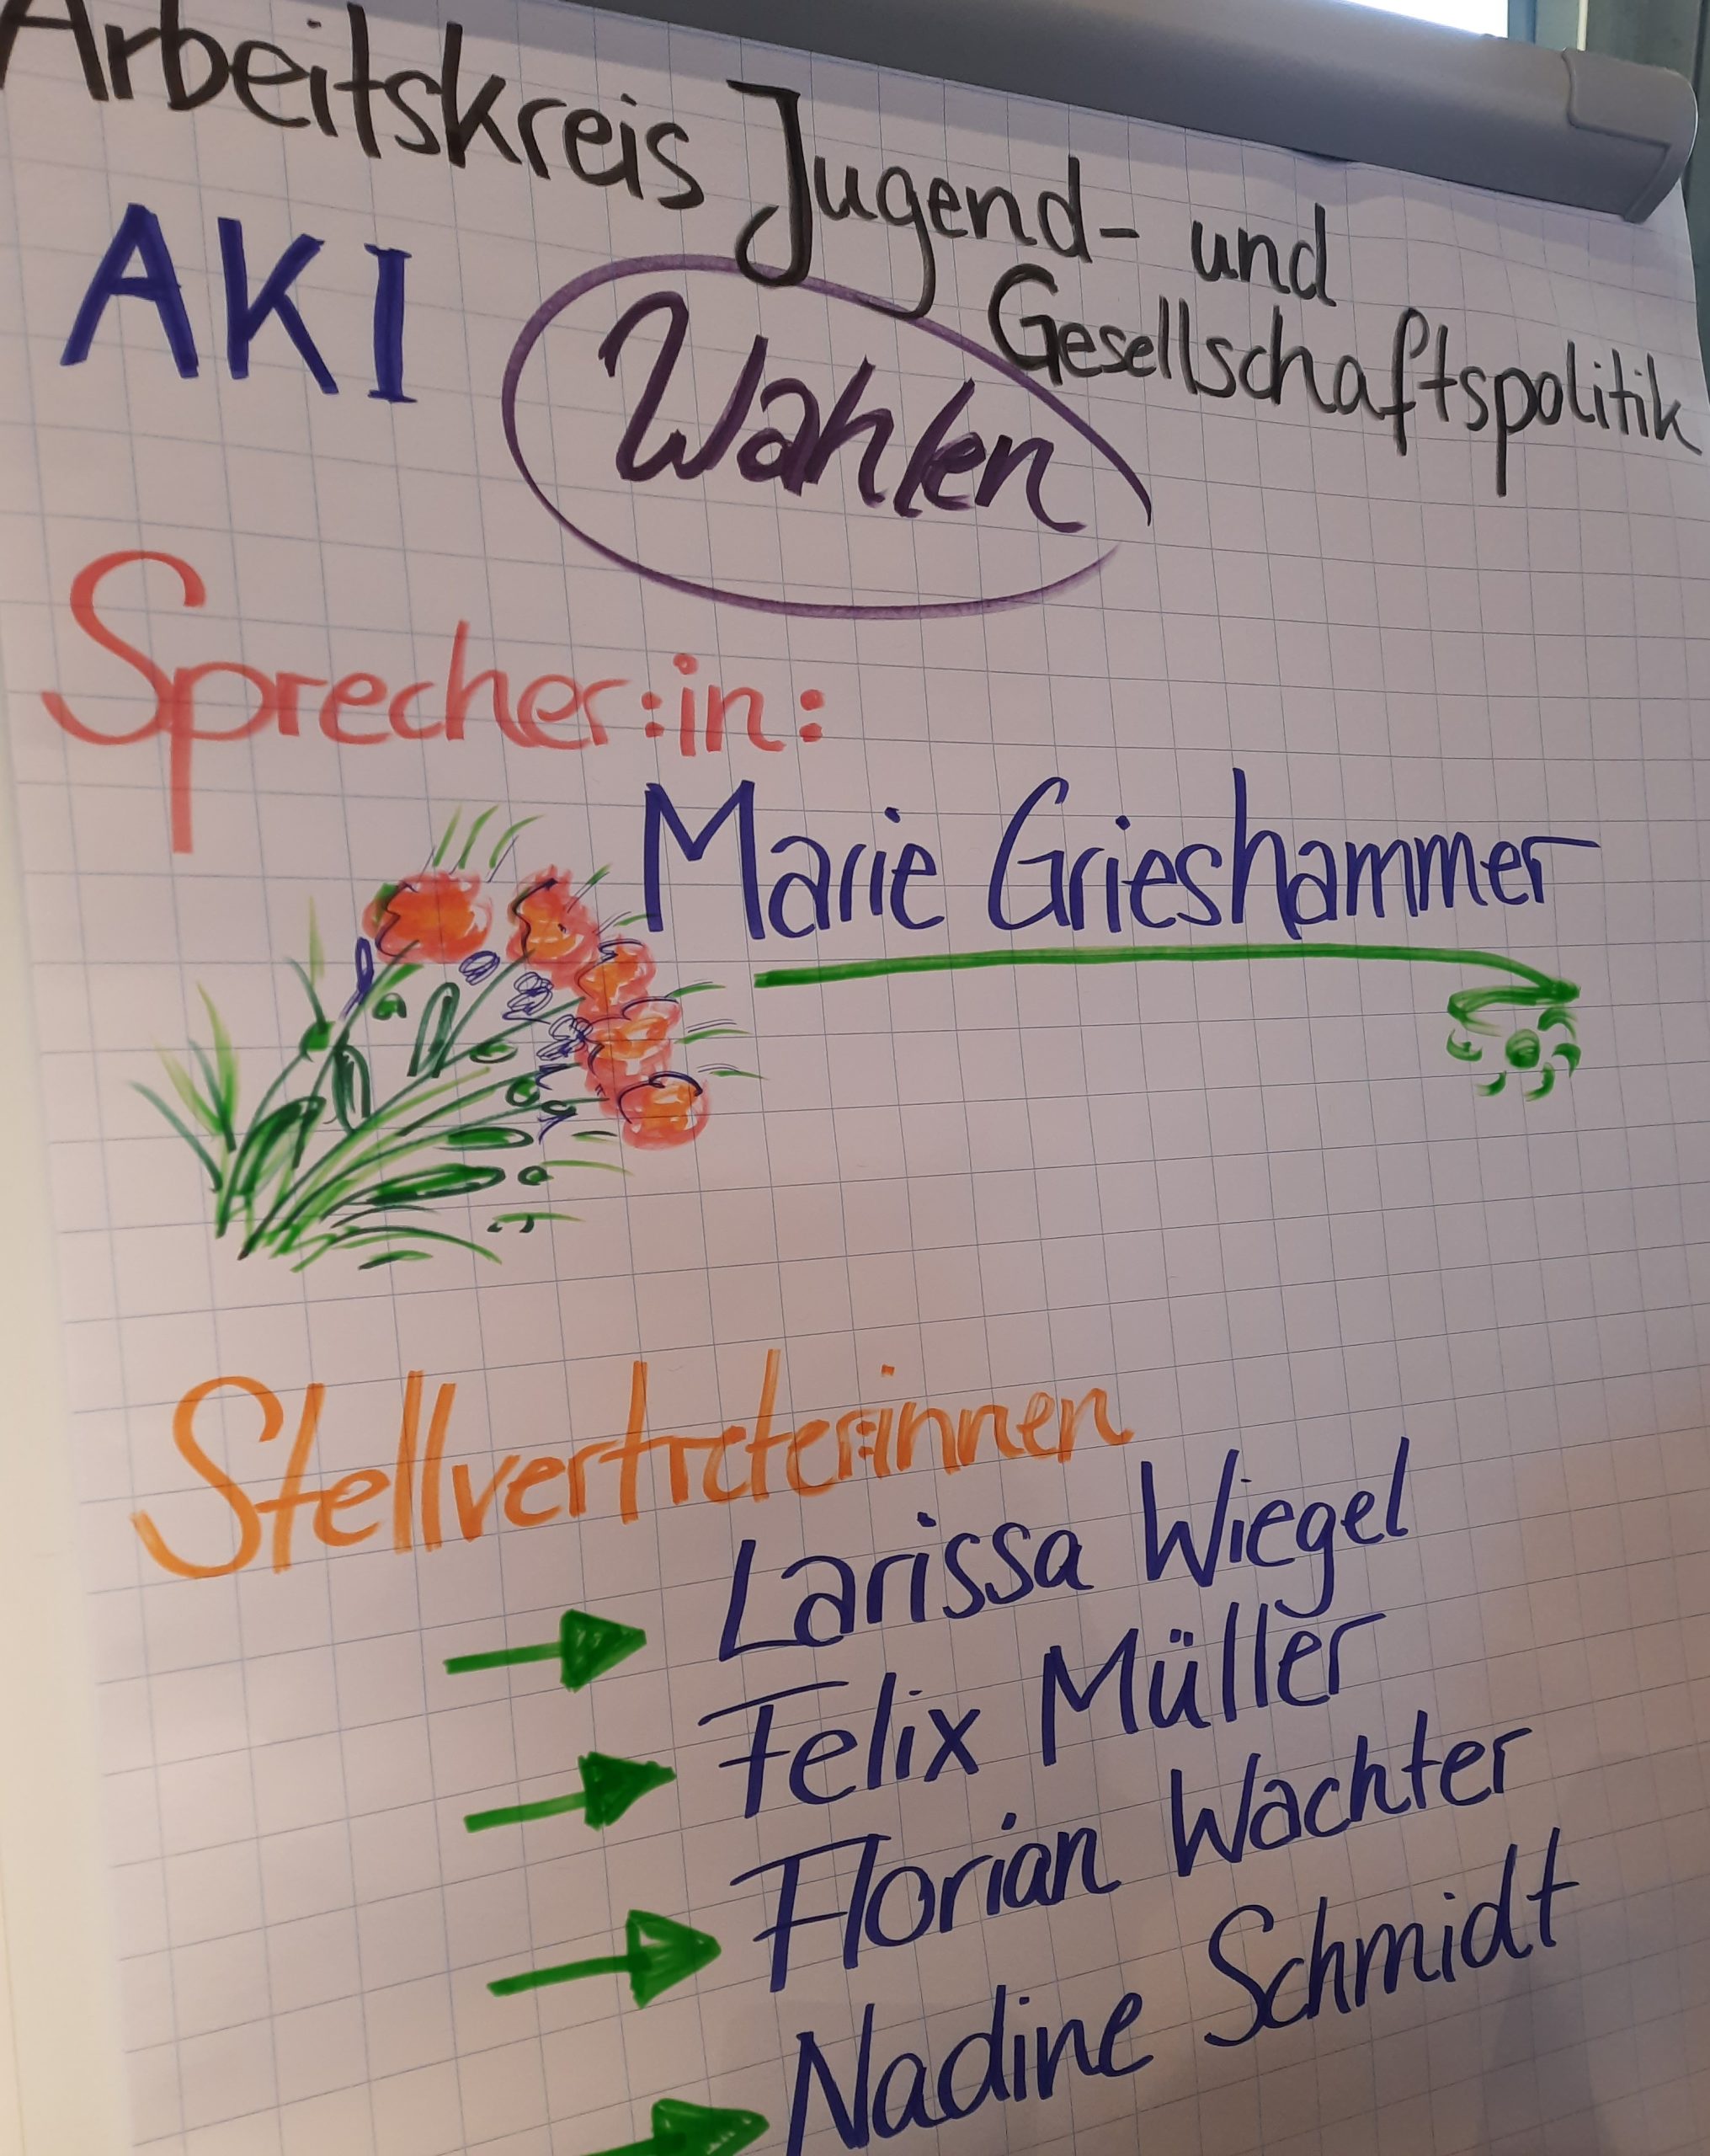 Arbeitskreis Jugend- und
Gesellschaftspolitik
AKI
Wahlen
Sprecher:in:
Marie Grieshammer
Stellvertreter:innen
Larissa Wiegel
Felix Müller
Florian Wachter
Nadine Schmidt